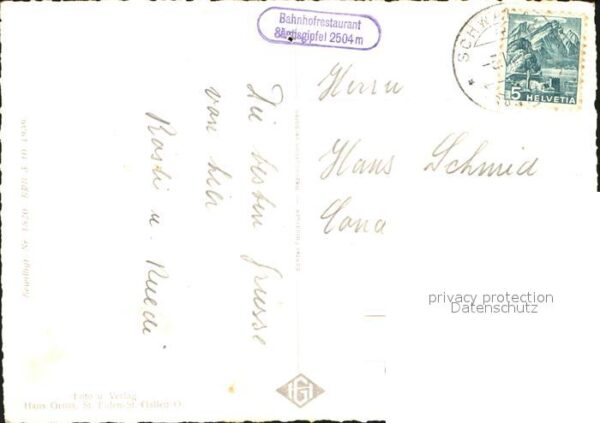 Bahnhofrestaurant
Säntisgipfel 2504 m
SCHWÄ
5 HELVETIA
Herrn
Hans Schmid
Die besten Grüsse
von hier
Rösli u. Ruedi
privacy protection
Datenschutz
HG
Foto u. Verlag
Hans Gross, St. Fiden-St. Gallen O.